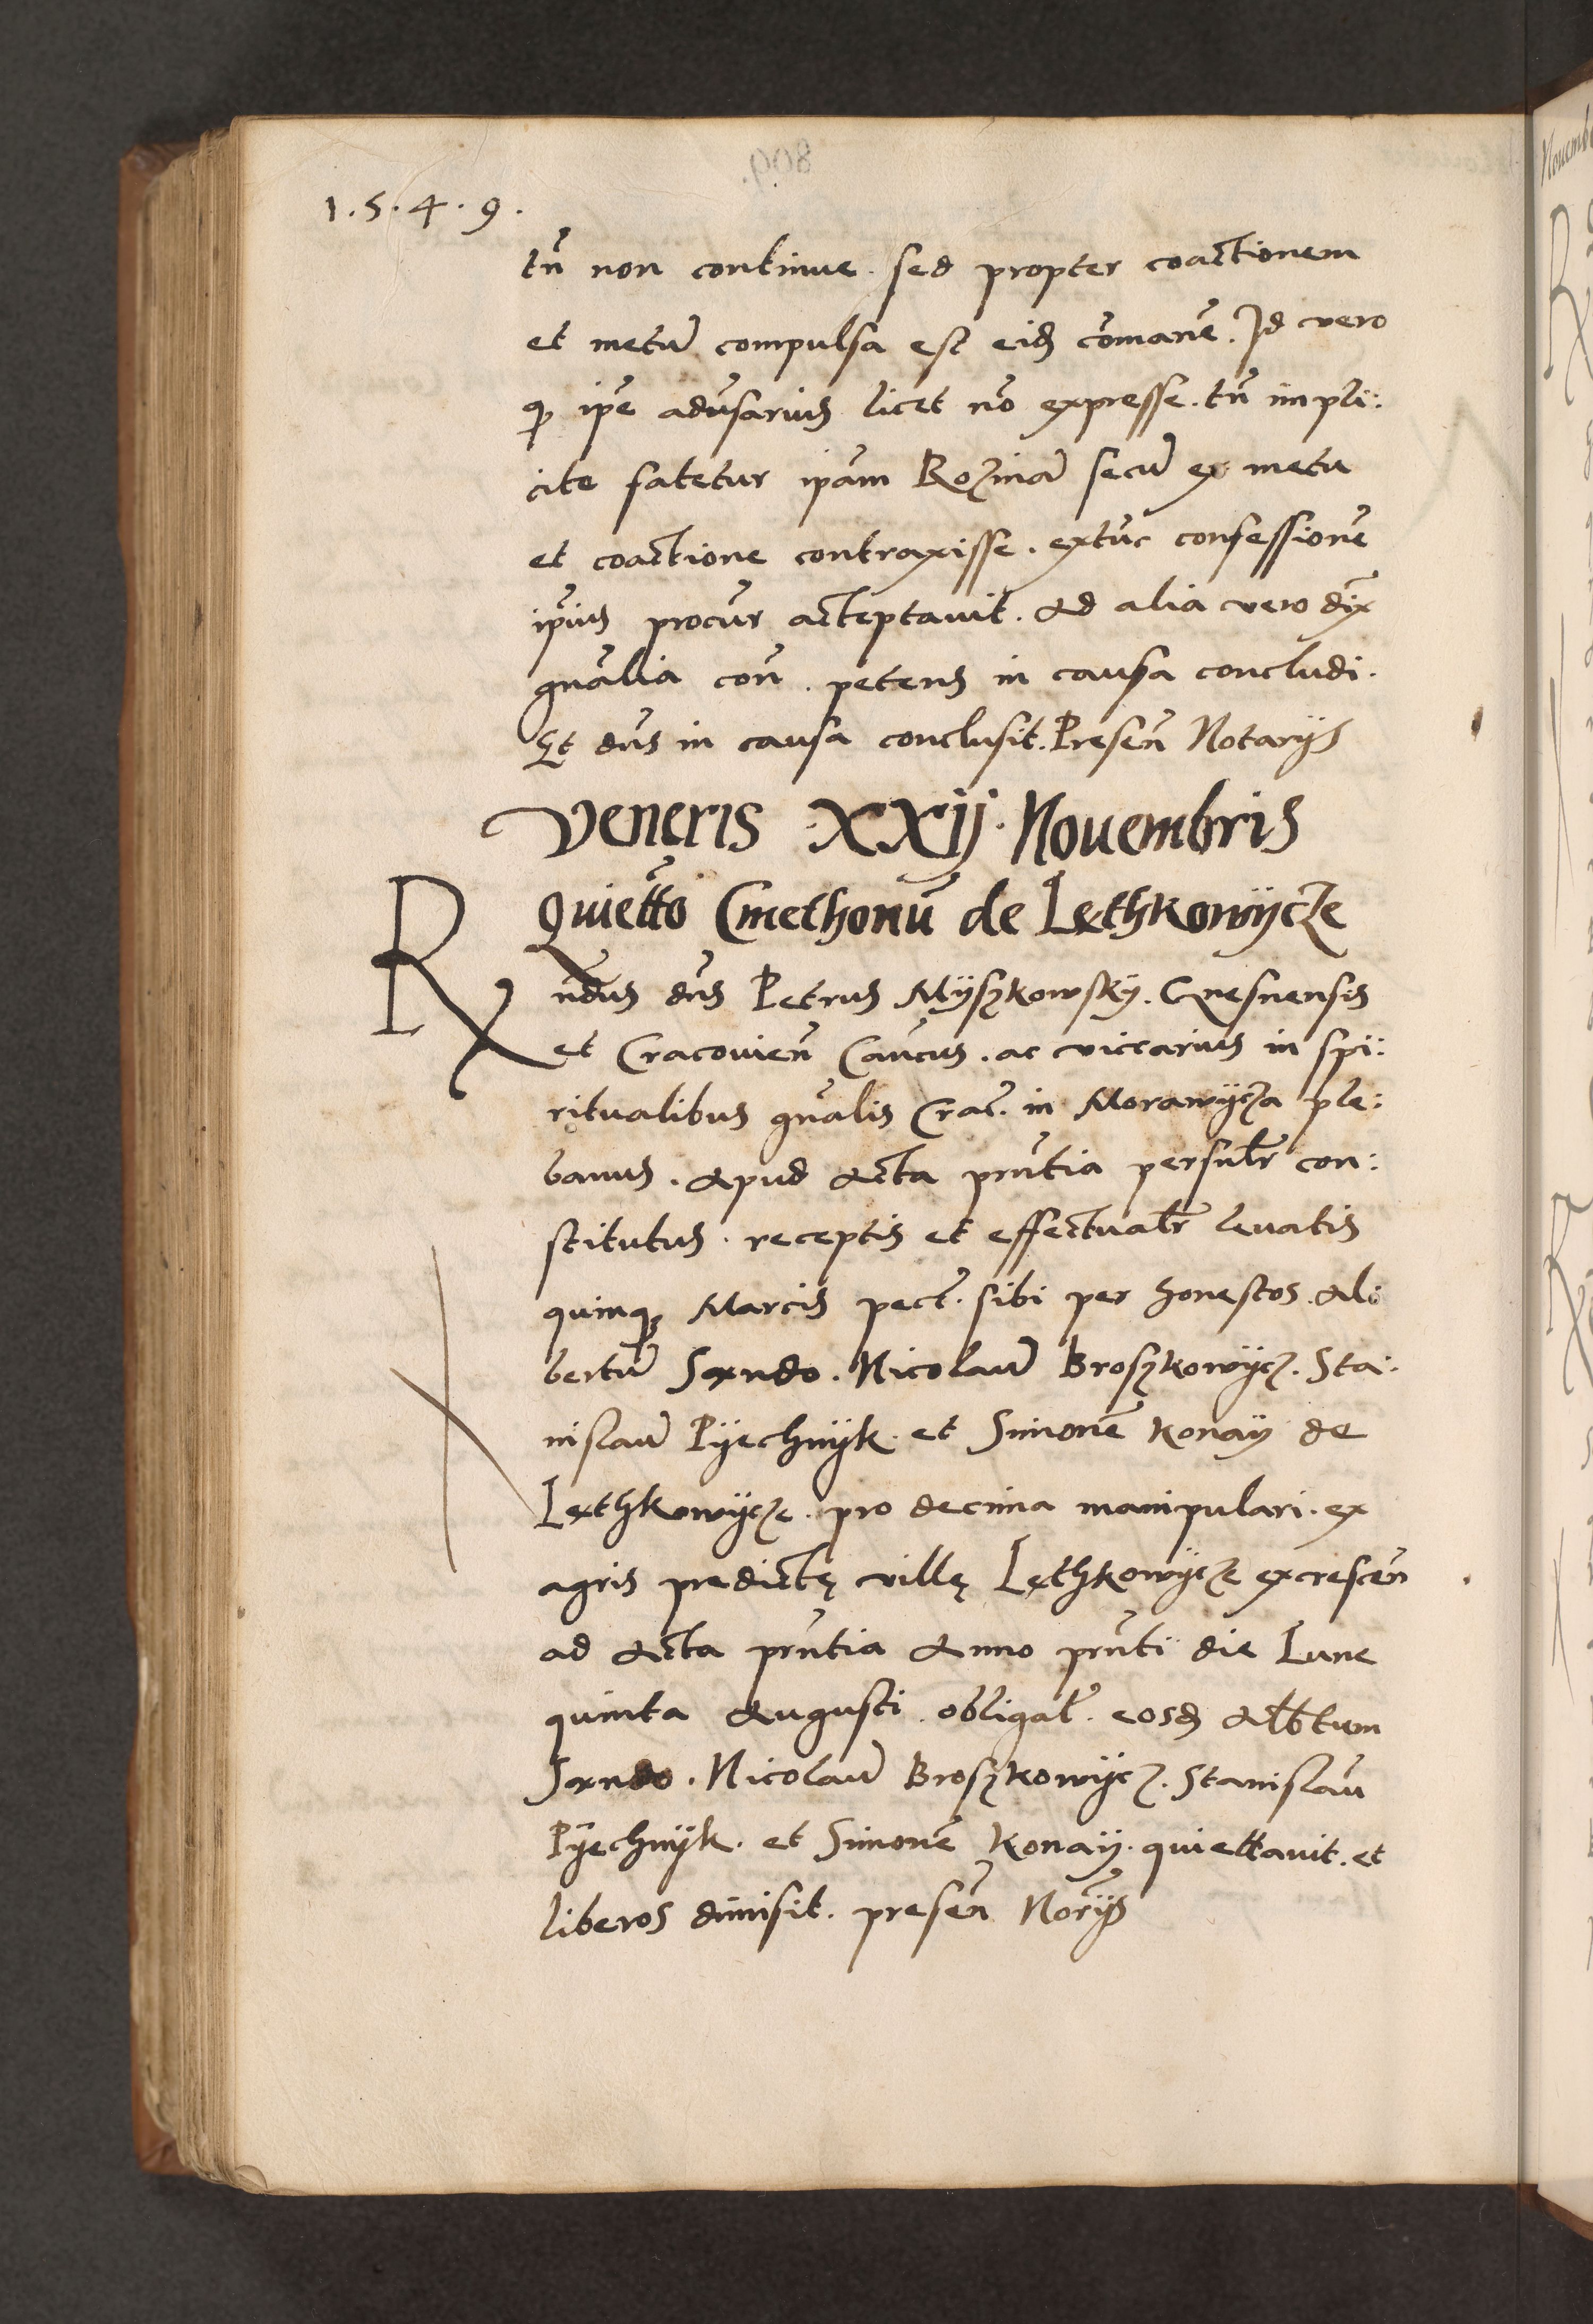 1.5.4.9.
tñ non continue. sed propter coactionem
et metū compulsa est eidē cōmanē. Id vero
qd ipē aduersarius licet nō expresse. tñ impli:
cite fatetur ipām Rozinā secū ex metu
et coactione contraxisse. extūc confessionē
ipīus procur̄ acceptauit. Ad alia vero dīx
gnālia con̄. petens in causa concludi.
Et dn̄s in causa conclusit. Presen̄ Notarijs
Veneris XXIJ. Nouembris
Quietto Cmethonū de Lethkowÿcze
Rndus dn̄s Petrus Mÿszkowskÿ. Gnesnensis
et Cracouien̄ Cancus. ac viccarius in spi:
ritualibus gnālis Crac̄. in Morawÿcza ple:
banus. Apud Acta prn̄tia persnlr̄ con:
stitutus. receptis et effectualr̄ leuatis
quinqz Marcis pect̄. sibi per honestos. Al:
bertū Sxndo. Nicolaū Broszkowÿcz. Sta:
nislaū Pÿechnÿk. et Simonē Konaÿ de
Lethkowÿcze. pro decima manipulari. ex
agris predictę villę Lethkowÿcze excrescen̄
ad Acta prn̄tia Anno prn̄ti die Lune
quinta Augusti. obligat̄. eosd Albtum
Sxndo. Nicolaū Broszkowÿcz. Stanislaū
Pÿechnÿk. et Simonē Konaÿ. quiettauit. et
liberos dimisit. presen̄ Norījs